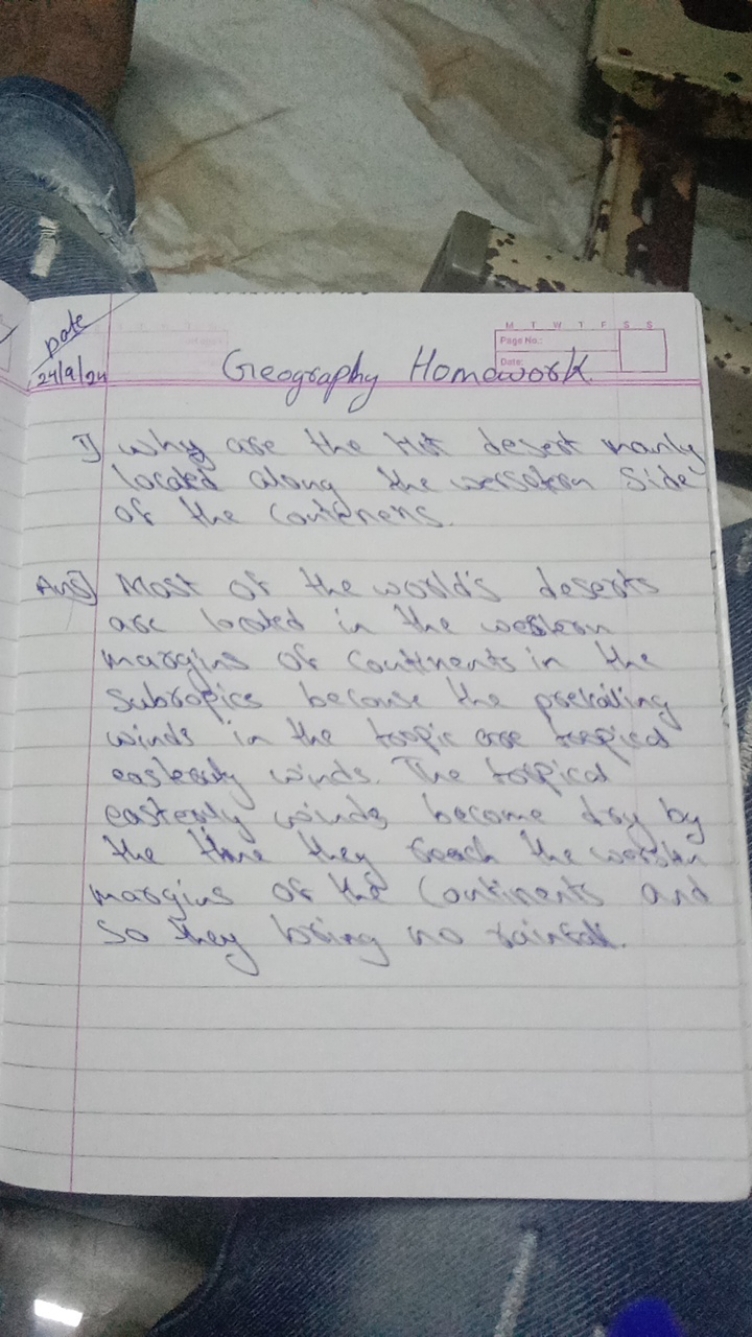 Date
24/9/24
M T W T F S S
Page No.:
Date:
Geography Homework.
1) Why are the Hot desert manly
located along the western side
of the
Ans) Most of the world's deserts
are located in the western
margins of continents in the
Subropics because the prevailing
winds in the tropic are tropical
easterly winds. The tropical
easterly winds become dry by
the time they reach the western
margins of the Continents and
So they bring no rainfall.